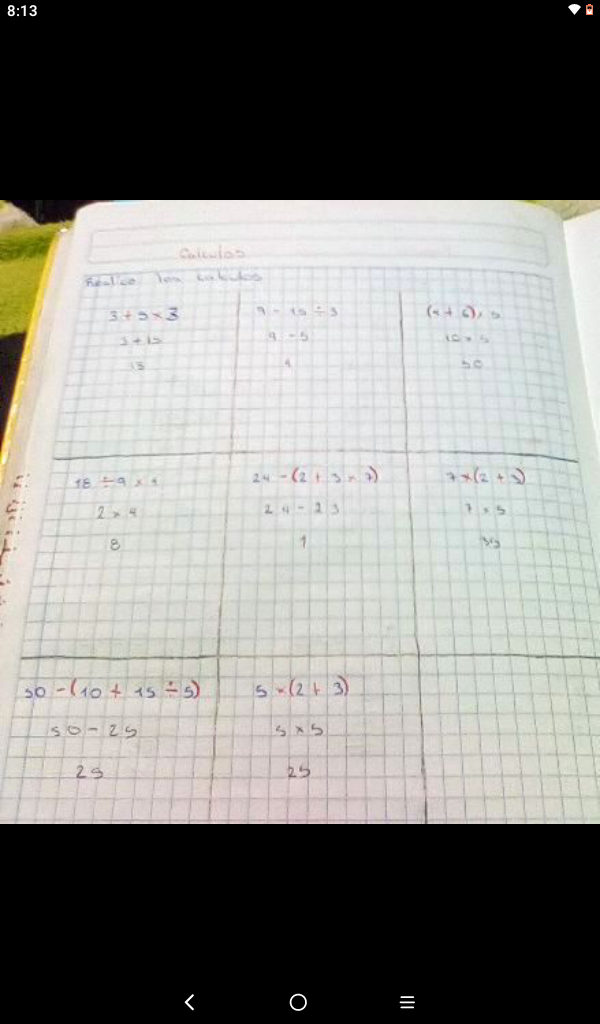 8:13
Calculos
Realizo los calculos
3 + 5 × 3
3 + 15
9 - 15 ÷ 3
9 - 5
4
10 × 5
50
18 ÷ 9 × 4
2 × 4
8
24 - (2 + 3 × 7)
24 - 23
1
7 × (2 + 3)
7 × 5
35
50 - (10 + 15 ÷ 5)
50 - 25
25
5 × (2 + 3)
5 × 5
25